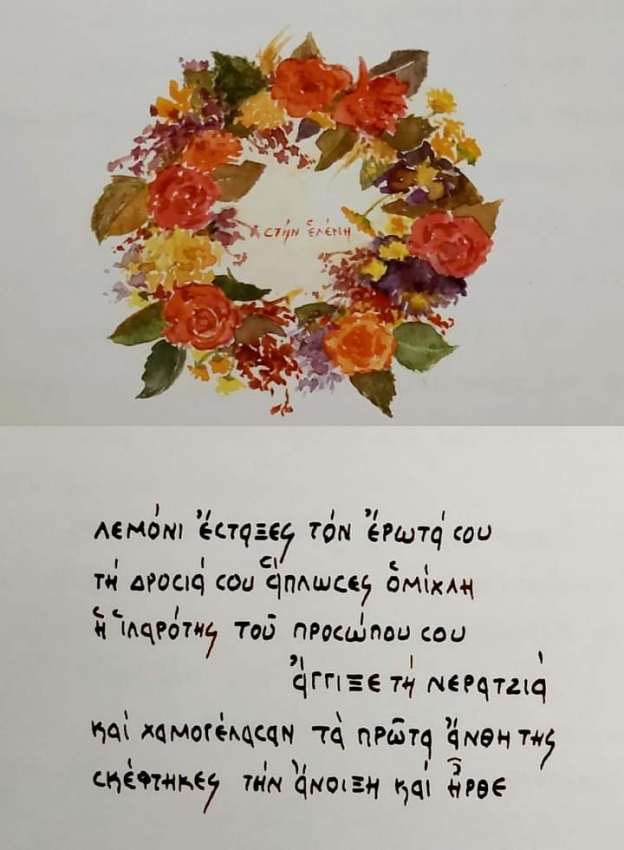 στὴν Ἑλένη
λεμόνι ἔσταξες τὸν ἔρωτά σου
τὴ δροσιά σου ἅπλωσες ὁμίχλη
ἡ ἱλαρότης τοῦ προσώπου σου
ἄγγιξε τὴ νερατζιά
καὶ χαμογέλασαν τὰ πρῶτα ἄνθη της
σκέφτηκες τὴν ἄνοιξη καὶ ἦρθε